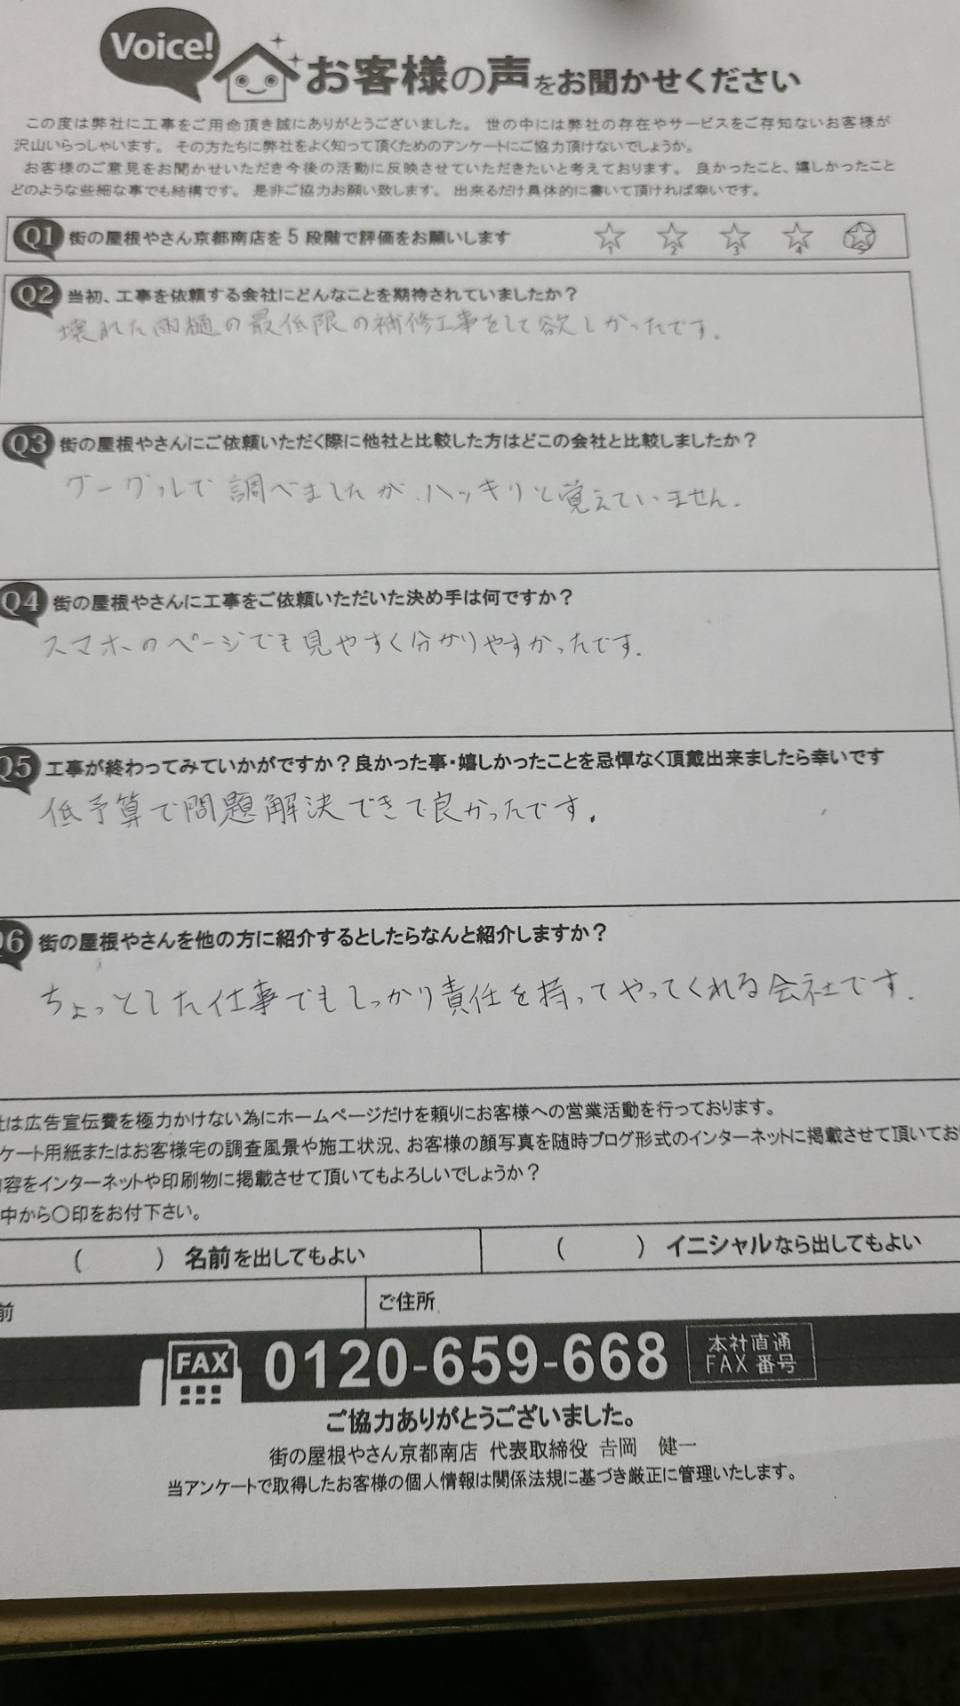 Voice!
お客様の声をお聞かせください
この度は弊社に工事をご用命頂き誠にありがとうございました。 世の中には弊社の存在やサービスをご存知ないお客様が
沢山いらっしゃいます。 その方たちに弊社をよく知って頂くためのアンケートにご協力頂けないでしょうか。
お客様のご意見をお聞かせいただき今後の活動に反映させていただきたいと考えております。 良かったこと、嬉しかったこと
どのような些細な事でも結構です。 是非ご協力お願い致します。 出来るだけ具体的に書いて頂ければ幸いです。
Q1 街の屋根やさん京都南店を5段階で評価をお願いします 1 2 3 4 5
Q2 当初、工事を依頼する会社にどんなことを期待されていましたか？
壊れた雨樋の最低限の補修工事をして欲しかったです。
Q3 街の屋根やさんにご依頼いただく際に他社と比較した方はどこの会社と比較しましたか？
グーグルで調べましたが、ハッキリと覚えていません。
Q4 街の屋根やさんに工事をご依頼いただいた決め手は何ですか？
スマホのページでも見やすく分かりやすかったです。
Q5 工事が終わってみていかがですか？良かった事・嬉しかったことを忌憚なく頂戴出来ましたら幸いです
低予算で問題解決できて良かったです。
Q6 街の屋根やさんを他の方に紹介するとしたらなんと紹介しますか？
ちょっとした仕事でもしっかり責任を持ってやってくれる会社です。
社は広告宣伝費を極力かけない為にホームページだけを頼りにお客様への営業活動を行っております。
ケート用紙またはお客様宅の調査風景や施工状況、お客様の顔写真を随時ブログ形式のインターネットに掲載させて頂いてお
内容をインターネットや印刷物に掲載させて頂いてもよろしいでしょうか？
中から〇印をお付下さい。
（　　　）名前を出してもよい （　　　）イニシャルなら出してもよい
前 ご住所
FAX 0120-659-668 本社直通
FAX番号
ご協力ありがとうございました。
街の屋根やさん京都南店 代表取締役 𠮷岡 健一
当アンケートで取得したお客様の個人情報は関係法規に基づき厳正に管理いたします。